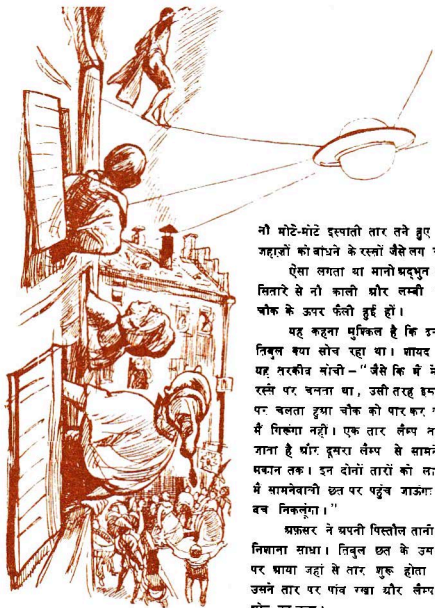 नौ मोटे-मोटे इस्पाती तार तने हुए
जहाज़ों को बांधने के रस्सों जैसे लग
ऐसा लगता था मानो अद्भुत
सितारे से नौ काली और लम्बी
चौक के ऊपर फैली हुई हों।
यह कहना मुश्किल है कि इस
तिबुल क्या सोच रहा था। शायद
यह तरकीब सोची – "जैसे कि मैं
रस्से पर चलता था, उसी तरह इस
पर चलता हुआ चौक को पार कर
मैं गिरूंगा नहीं। एक तार लैम्प
जाता है और दूसरा लैम्प से सामने
मकान तक। इन दोनों तारों को
मैं सामनेवाली छत पर पहुंच जाऊंगा
बच निकलूंगा।"
अफ़सर ने अपनी पिस्तौल तानी
निशाना साधा। तिबुल छत के उस
पर आया जहां से तार शुरू होता
उसने तार पर पांव रखा और लैम्प